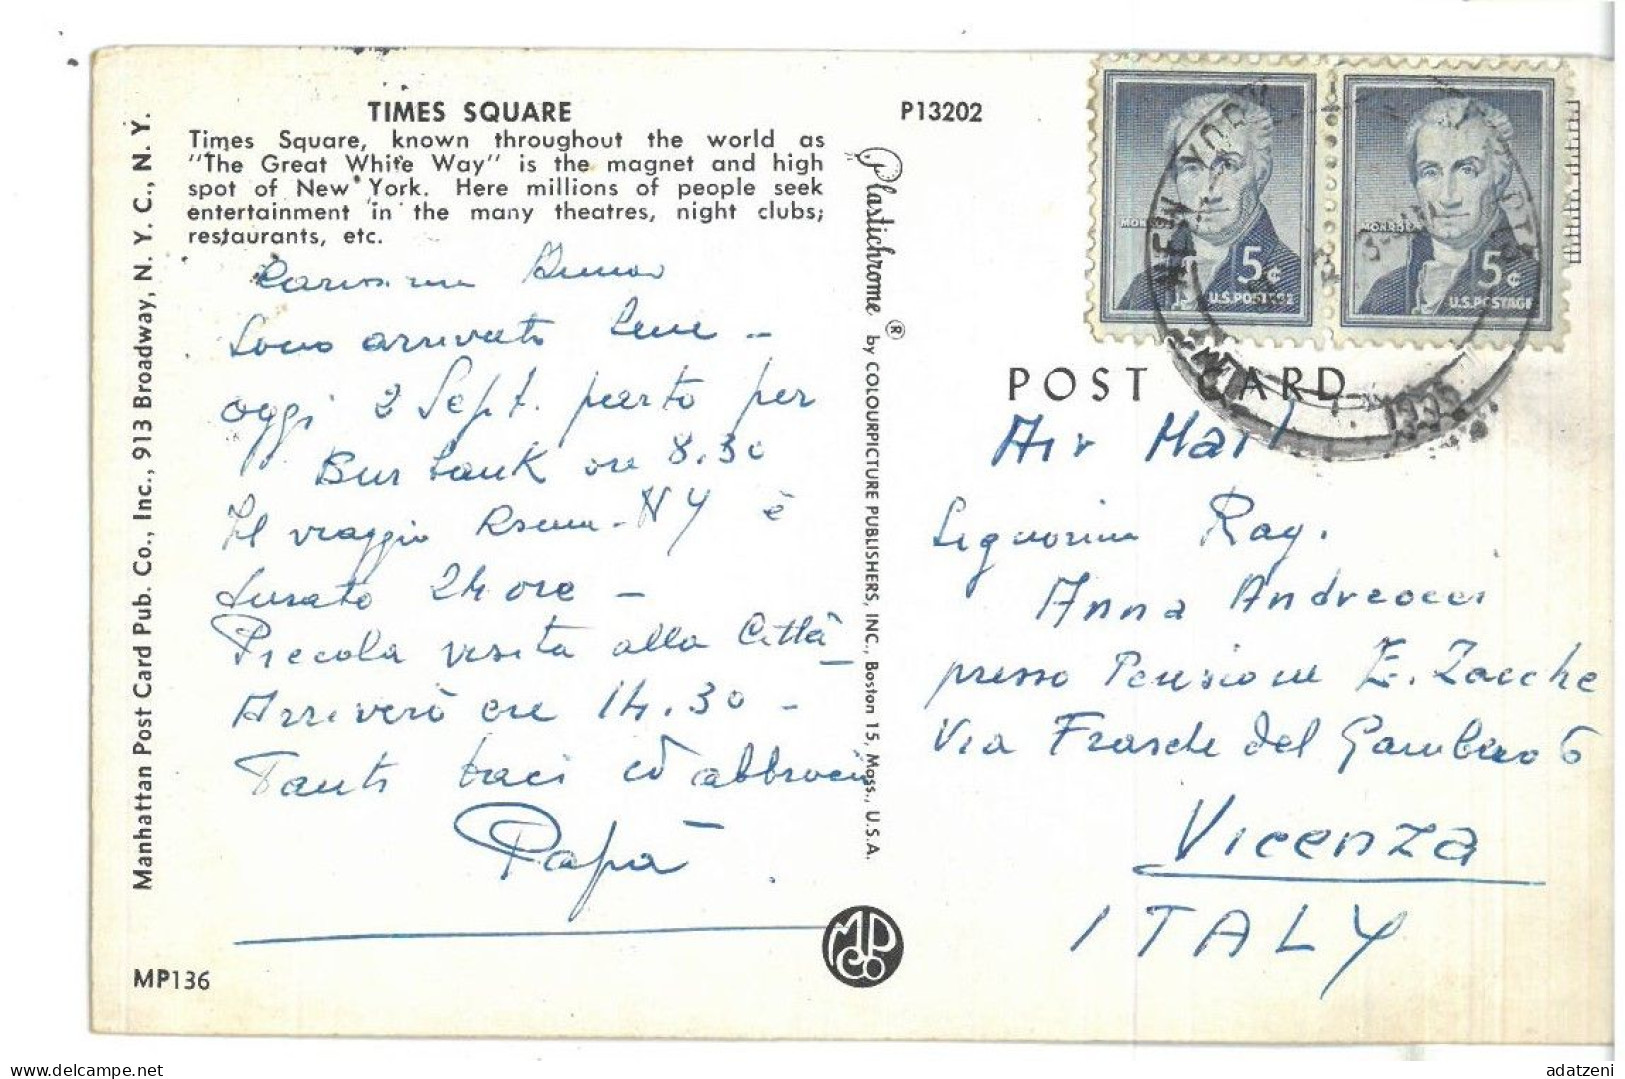 TIMES SQUARE
P13202
Times Square, known throughout the world as
"The Great White Way" is the magnet and high
spot of New York. Here millions of people seek
entertainment in the many theatres, night clubs;
restaurants, etc.
Manhattan Post Card Pub. Co., Inc., 913 Broadway, N. Y. C., N. Y.
Sono arrivato bene -
oggi 2 Sept. parto per
Burbank ore 8.30
Il viaggio Roma - NY è
durato 24 ore -
Piccola visita alla Città -
Arriverò ore 14.30 -
Tanti baci ed abbracci
Papà
MP136
Plastichrome ® by COLOURPICTURE PUBLISHERS, INC., Boston 15, Mass., U.S.A.
MPCo
MONROE 5¢ U.S. POSTAGE
MONROE 5¢ U.S. POSTAGE
NEW YORK
POST CARD
Air Mail
Signorina Rag.
Anna Andreocci
presso Pensione E. Zacche
Via Frasche del Gambero 6
Vicenza
ITALY
adatzeni